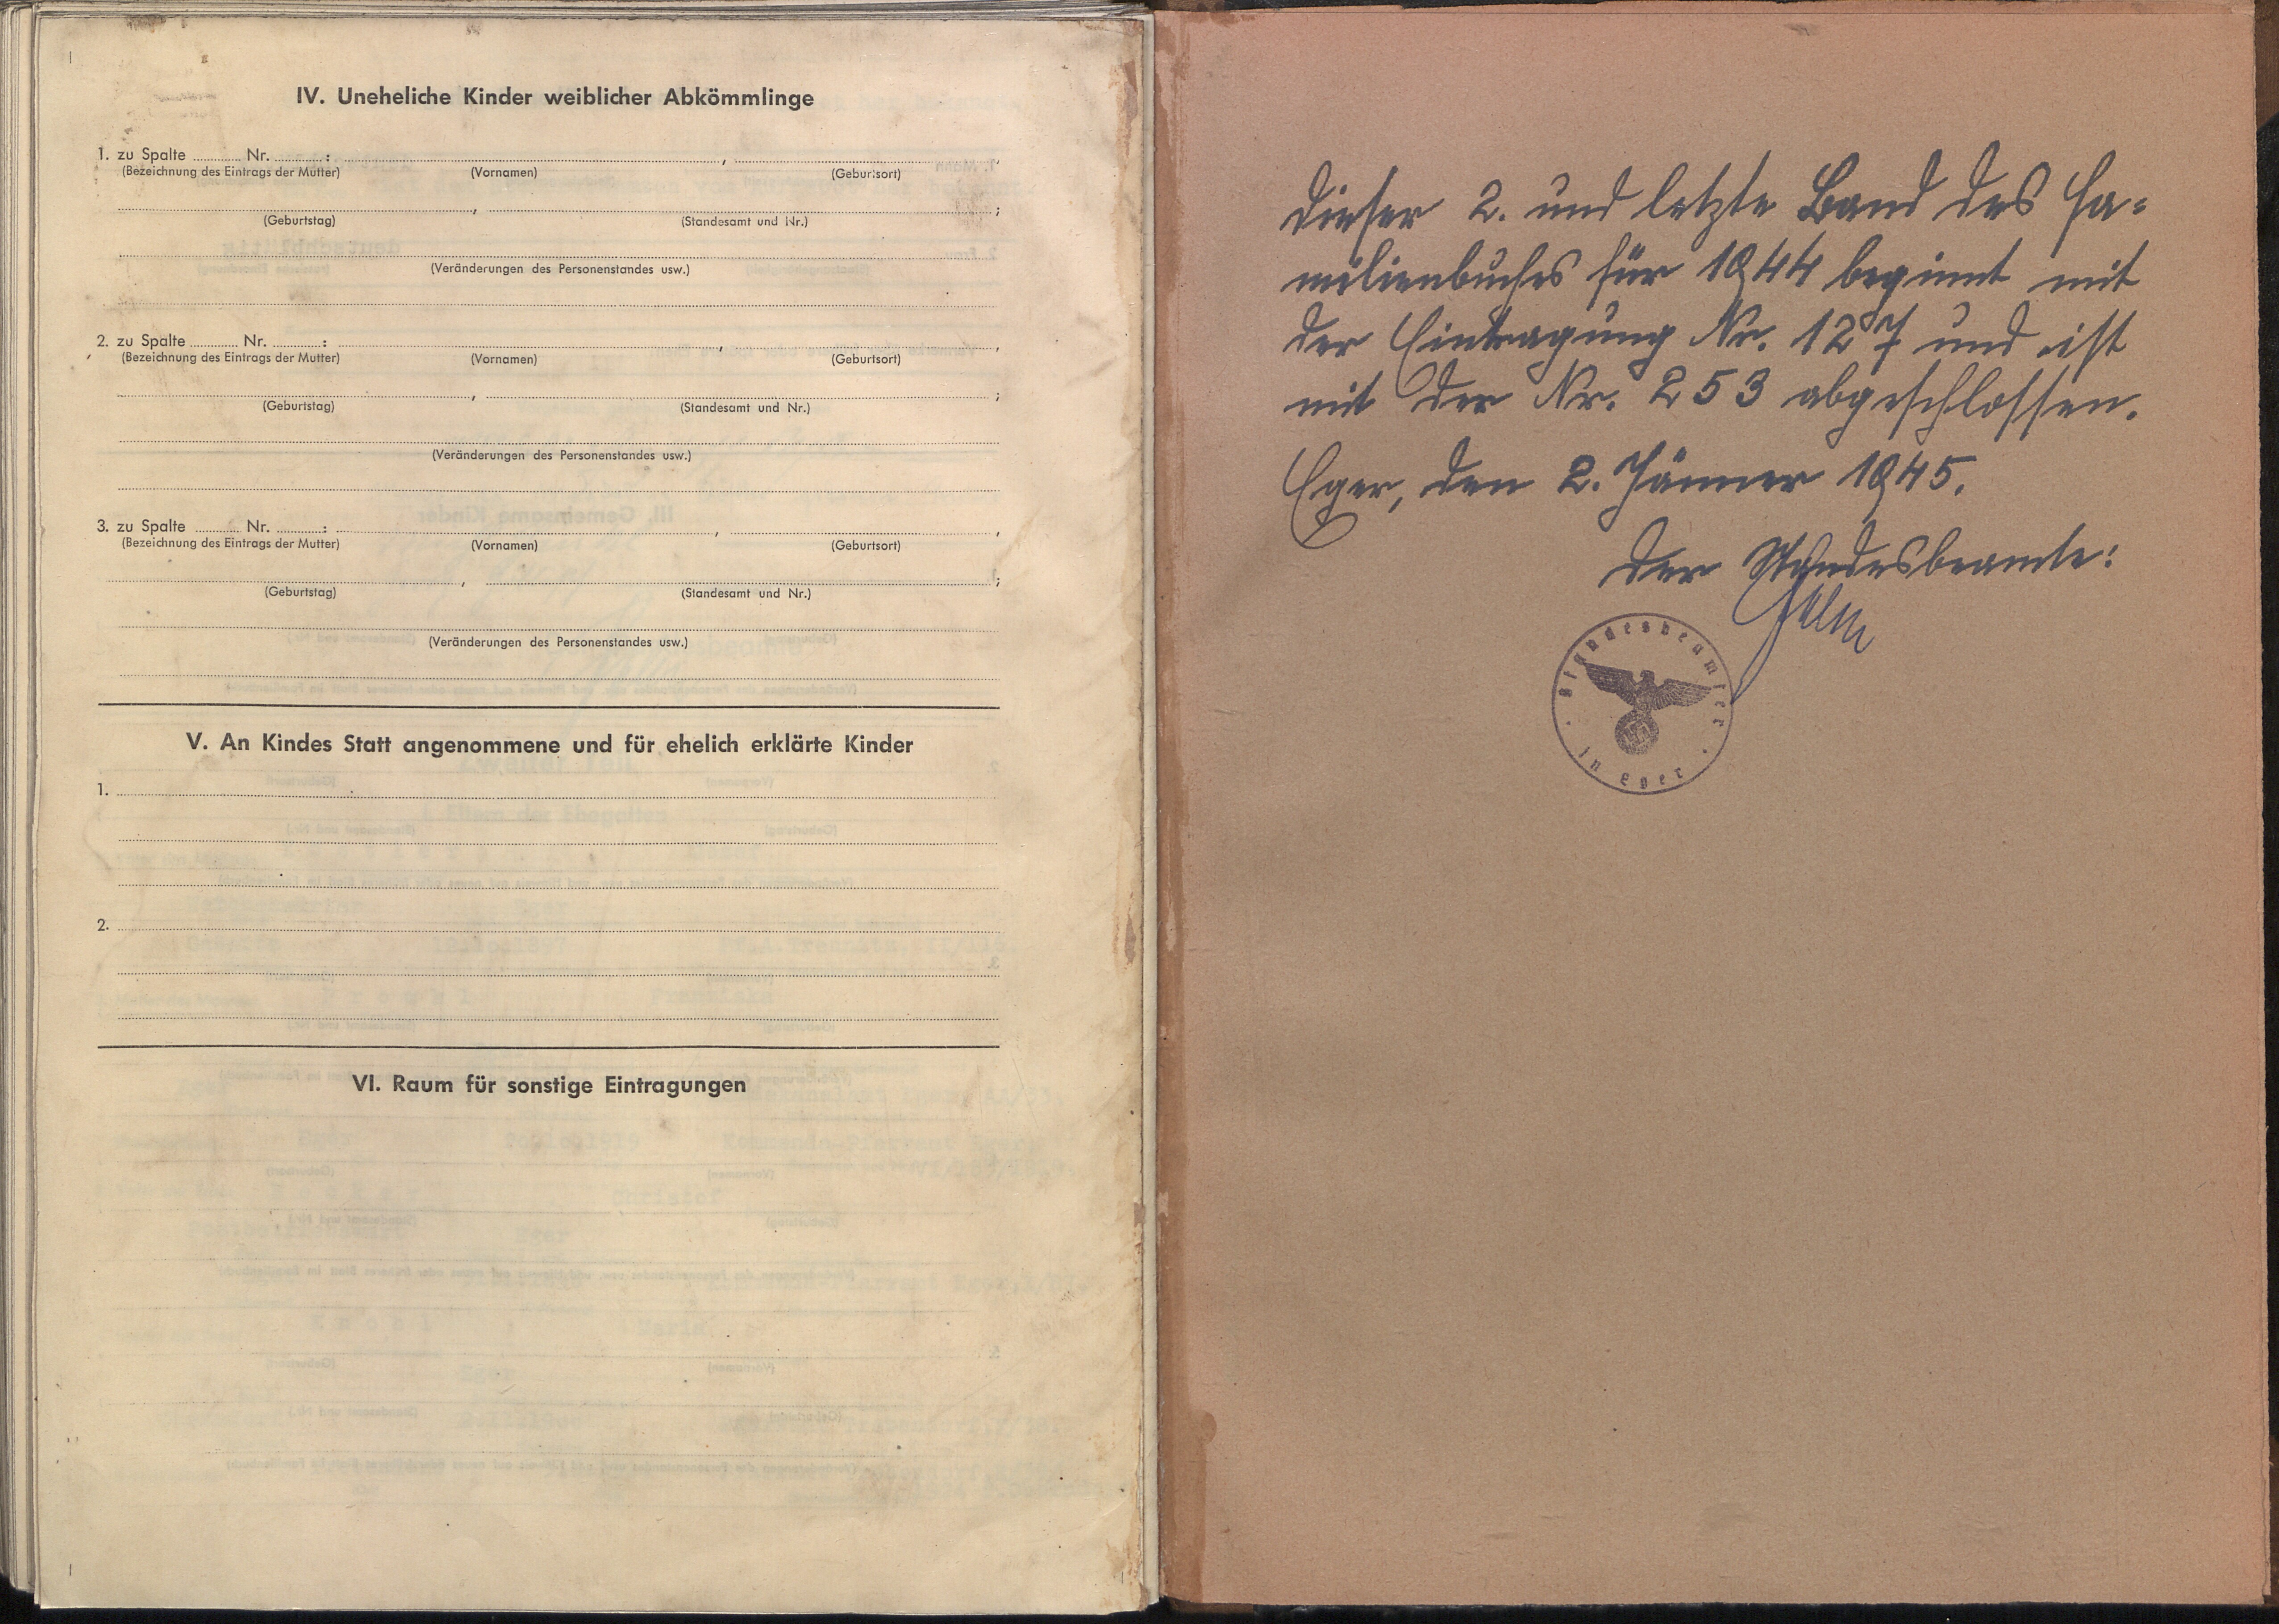 IV. Uneheliche Kinder weiblicher Abkömmlinge
1. zu Spalte ............ Nr. ............ :
(Bezeichnung des Eintrags der Mutter) (Vornamen) (Geburtsort)
(Geburtstag) (Standesamt und Nr.)
(Veränderungen des Personenstandes usw.)
2. zu Spalte ............ Nr. ............ :
(Bezeichnung des Eintrags der Mutter) (Vornamen) (Geburtsort)
(Geburtstag) (Standesamt und Nr.)
(Veränderungen des Personenstandes usw.)
3. zu Spalte ............ Nr. ............ :
(Bezeichnung des Eintrags der Mutter) (Vornamen) (Geburtsort)
(Geburtstag) (Standesamt und Nr.)
(Veränderungen des Personenstandes usw.)
V. An Kindes Statt angenommene und für ehelich erklärte Kinder
1.
2.
VI. Raum für sonstige Eintragungen
Dieser 2. und letzte Band des Fa-
milienbuches für 1944 beginnt mit
der Eintragung Nr. 127 und ist
mit der Nr. 253 abgeschlossen.
Eger, den 2. Jänner 1945.
Der Standesbeamte:
Standesbeamter
in Eger